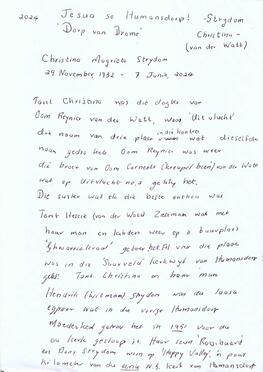 2024 Jesua se Humansdorp! - Strydom
'Dorp van Drome' Christina -
(van der Watt)
Christina Magrieta Strydom
29 November, 1932 - 7 Junie, 2024
Tant Christina was die dogter van
Oom Reynier van der Watt, waar 'Uitvlucht'
die naam van drie plase was wat dieselfde
naam gedra het. Oom Reynier was weer
die broer van Oom Cornelis van der Watt
wat op Uitvlucht no. 2 gebly het.
Die suster wat ek die beste onthou was
Tant Hessie (van der Watt) Zeelman wat met
haar man en kinders weer op 'n buurplaas
geboer het. Al vier die plase
was in die 'Suurveld' kerkwyk van Humansdorp
gelê. Tant Christina en haar man
Hendrik Strydom was die laaste
egpaar wat in die vorige Humansdorp
Moederkerk getrou het in 1951 voor die
ou kerk gesloop is. Haar seun
en Strydom woon op 'Happy Valley', 'n paar
kilometer van die N.G. kerk van Humansdorp